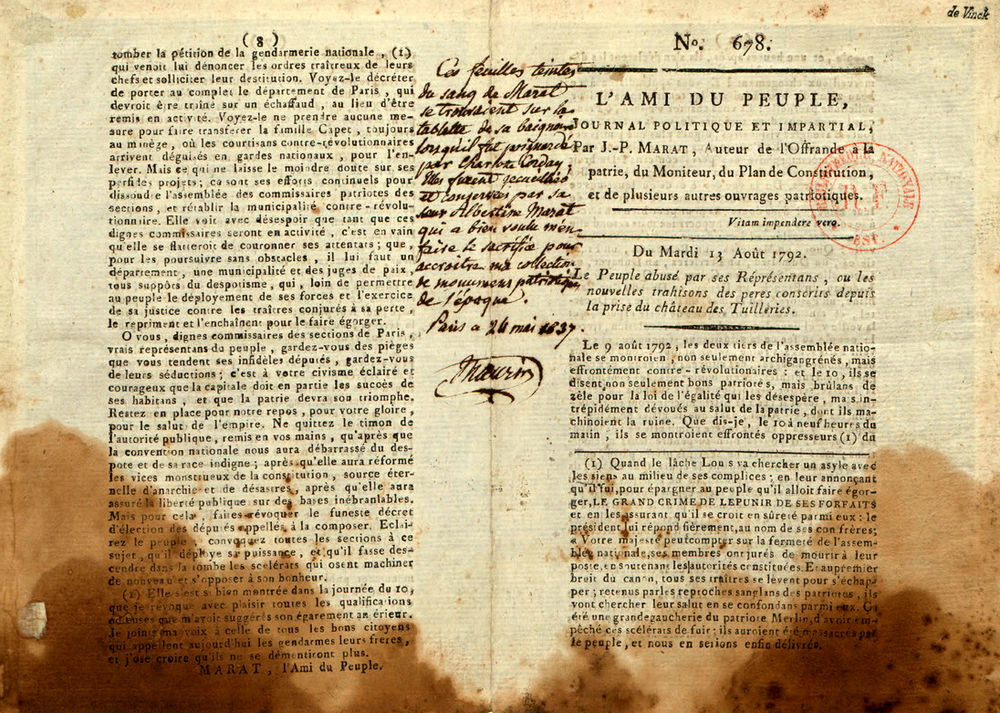 de Vinck
( 8 )
tomber la pétition de la gendarmerie nationale, (1)
qui venoit lui dénoncer les ordres traîtreux de leurs
chefs et solliciter leur destitution. Voyez-le décréter
de porter au complet le département de Paris, qui
devroit être traîné sur un échaffaud, au lieu d'être
remis en activité. Voyez-le ne prendre aucune me-
sure pour faire transférer la famille Capet, toujours
au minège, où les courtisans contre-révolutionnaires
arrivent déguisés en gardes nationaux, pour l'en-
lever. Mais ce qui ne laisse le moindre doute sur ses
perfides projets; ce sont ses efforts continuels pour
dissoudre l'assemblée des commissaires patriotes des
sections, et rétablir la municipalité contre-révolu-
tionnaire. Elle voit avec désespoir que tant que ces
dignes commissaires seront en activité, c'est en vain
qu'elle se flatteroit de couronner ses attentats; que,
pour les poursuivre sans obstacles, il lui faut un
département, une municipalité et des juges de paix,
tous suppôts du despotisme, qui, loin de permettre
au peuple le déployement de ses forces et l'exercice
de sa justice contre les traîtres conjurés à sa perte,
le repriment et l'enchaînent pour le faire égorger.
O vous, dignes commissaires des sections de Paris,
vrais représentans du peuple, gardez-vous des pièges
que vous tendent ses infidèles députés, gardez-vous
de leurs séductions; c'est à votre civisme éclairé et
courageux que la capitale doit en partie les succès de
ses habitans, et que la patrie devra son triomphe.
Restez en place pour notre repos, pour votre gloire,
pour le salut de l'empire. Ne quittez le timon de
l'autorité publique, remis en vos mains, qu'après que
la convention nationale nous aura débarrassé du des-
pote et de sa race indigne; après qu'elle aura réformé
les vices monstrueux de la constitution, source éter-
nelle d'anarchie et de désastres, après qu'elle aura
assuré la liberté publique sur des bases inébranlables.
Mais pour cela, faites révoquer le funeste décret
d'élection des députés appellés à la composer. Eclai-
rez le peuple, convoquez toutes les sections à ce
sujet, qu'il déploye sa puissance, et qu'il fasse des-
cendre dans la tombe les scelérats qui osent machiner
de nouveau et s'opposer à son bonheur.
(1) Elle s'est si bien montrée dans la journée du 10,
que je révoque avec plaisir toutes les qualifications
odieuses que m'avoit suggérés son égarement antérieur.
Je joins ma voix à celle de tous les bons citoyens
qui appellent aujourd'hui les gendarmes leurs frères,
et j'ose croire qu'ils ne se démentiront plus.
MARAT, l'Ami du Peuple.
Ces feuilles teintes
du sang de Marat
se trouvaient sur la
tablette de sa baignoire
lorsqu'il fut poignardé
par Charlotte Corday.
Elles furent recueillies
et conservées par sa
soeur Albertine Marat
qui a bien voulu m'en
faire le sacrifice pour
accroitre ma collection
de monumens patriotiques
de l'époque.
Paris ce 26 mai 1837.
Maurin
No. 678.
L'AMI DU PEUPLE,
JOURNAL POLITIQUE ET IMPARTIAL,
Par J.-P. MARAT, Auteur de l'Offrande à la
patrie, du Moniteur, du Plan de Constitution,
et de plusieurs autres ouvrages patriotiques.
BIBLIOTHEQUE NATIONALE
R F
EST.
Vitam impendere vero.
Du Mardi 13 Août 1792.
Le Peuple abusé par ses Réprésentans, ou les
nouvelles trahisons des peres conscrits depuis
la prise du château des Tuilleries.
Le 9 août 1792, les deux tiers de l'assemblée natio-
nale se montroient, non seulement archigangrénés, mais
effrontément contre-révolutionaires: et le 10, ils se
disent, non seulement bons patriotes, mais brûlans de
zèle pour la loi de l'égalité qui les désespère, mais in-
trépidément dévoués au salut de la patrie, dont ils ma-
chinoient la ruine. Que dis-je, le 10 à neuf heures du
matin, ils se montroient effrontés oppresseurs (1) du
(1) Quand le lâche Louis va chercher un asyle avec
les siens au milieu de ses complices; en leur annonçant
qu'il fui, pour épargner au peuple qu'il alloit faire égor-
ger, LE GRAND CRIME DE LE PUNIR DE SES FORFAITS
et en les assurant qu'il se croit en sûreté parmi eux: le
président lui répond fièrement, au nom de ses confrères;
« Votre majesté peut compter sur la fermeté de l'assem-
blée nationale, ses membres ont jurés de mourir à leur
poste, en soutenant les autorités constituées. Et au premier
bruit du canon, tous ses traîtres se lèvent pour s'échap-
per; retenus par les reproches sanglans des patriotes, ils
vont chercher leur salut en se confondans parmi eux. Ça
été une grande gaucherie du patriote Merlin, d'avoir em-
pêché ces scélérats de fuir; ils auroient été massacrés par
le peuple, et nous en serions enfin délivrés.